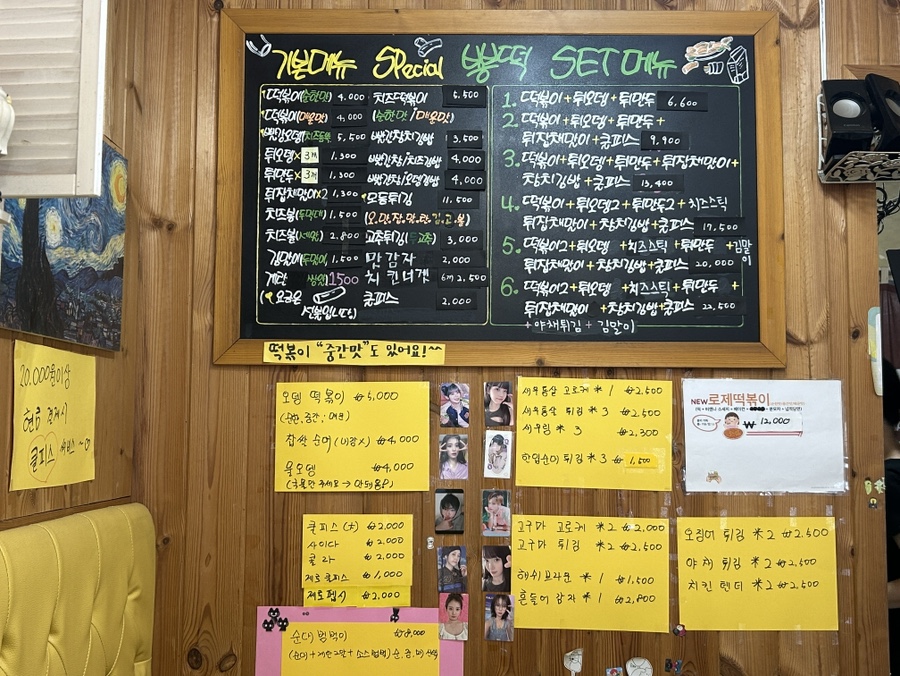 기본메뉴 Special 빵떡 SET메뉴
떡볶이(순한맛) 4,000
떡볶이(매운맛) 4,000
5,500
튀오뎅x3개 1,300
튀만두x3개 1,300
튀잡채말이x2 1,300
치즈볼 1,500
치즈볼 2,800
김말이 1,500
계란 1500
치즈떡볶이 6,500
(순한맛/매운맛)
빵김창치김밥 3,500
4,000
4,000
모둠튀김 11,500
(오.만.잡.맛.란.김.고.볼)
고추튀김 3,000
맛감자 2,000
치킨너겟 6개 2,500
쿨피스 2,000
1. 떡볶이+튀오뎅+튀만두 6,600
2. 떡볶이+튀오뎅+튀만두+
튀잡채말이+쿨피스 9,900
3. 떡볶이+튀오뎅+튀만두+튀잡채말이+
참치김밥+쿨피스 13,400
4. 떡볶이+튀오뎅2+튀만두2+치즈스틱
튀잡채말이+참치김밥+쿨피스 17,500
5. 떡볶이2+튀오뎅+치즈스틱+튀만두+김말이
튀잡채말이+참치김밥+쿨피스 20,000
6. 떡볶이2+튀오뎅+치즈스틱+튀만두+
튀잡채말이+참치김밥+쿨피스 22,500
+야채튀김+김말이
떡볶이 "중간맛"도 있어요!^^
20,000원이상
현금 결제시
쿨피스 서비스
오뎅 떡볶이 ₩5,000
(순한, 중간, 매운)
찹쌀 순대 (내장X) ₩4,000
물오뎅 ₩4,000
(국물만 주세요 → 안돼용P)
새우통살 고로케 *1 ₩2,500
새우통살 튀김 *3 ₩2,500
새우링 *3 ₩2,300
한입순대 튀김 *3 ₩1,500
NEW 로제떡볶이
₩ 12,000
쿨피스 (大) ₩2,000
사이다 ₩2,000
콜라 ₩2,000
제로 쿨피스 ₩1,000
제로펩시 ₩2,000
고구마 고로케 *2 ₩2,000
고구마 튀김 *2 ₩2,500
해쉬브라운 *1 ₩1,500
흔들어 감자 *1 ₩2,800
오징어 튀김 *2 ₩2,500
야채 튀김 *2 ₩2,500
치킨 텐더 *2 ₩2,500
순대 범벅이 ₩8,000